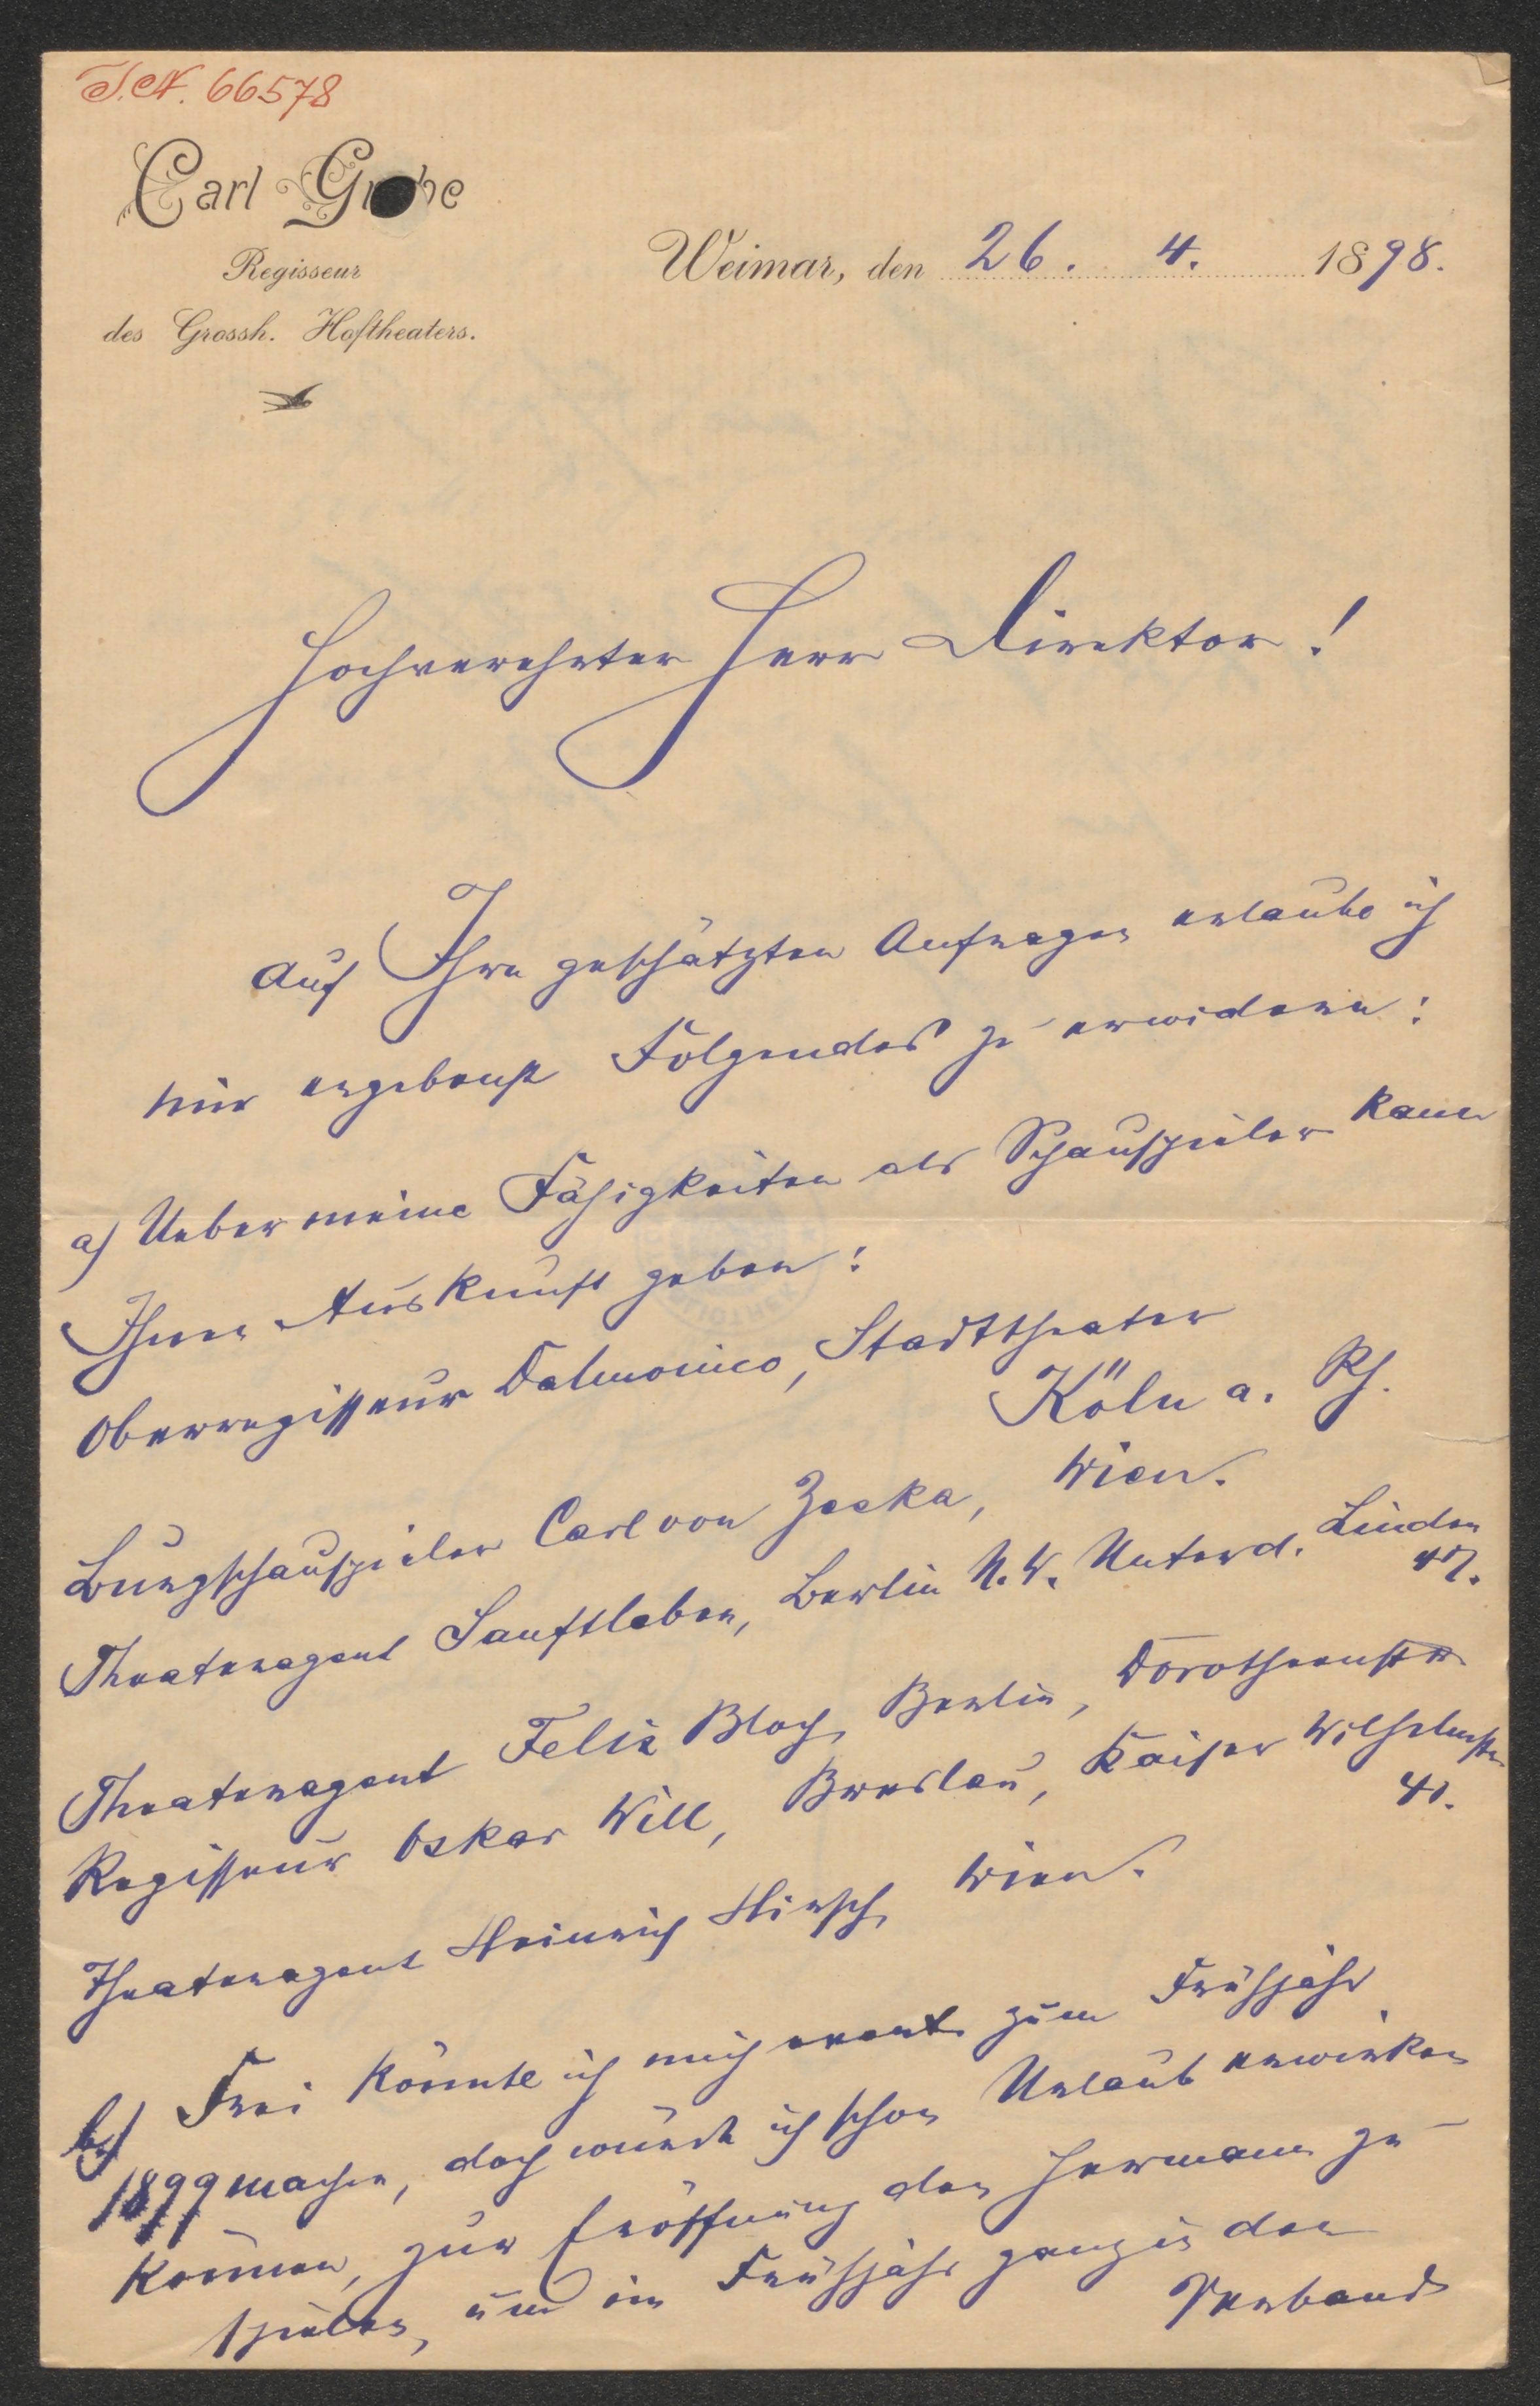 J.N. 66578
Carl Grube
Regisseur
des Grossh. Hoftheaters.
Weimar, den 26. 4. 1898.
Hochverehrter Herr Direktor!
Auf Ihre geschätzten Anfragen erlaube ich
mir ergebenst Folgendes zu erwidern:
a) Ueber meine Fähigkeiten als Schauspieler kann
Ihnen Auskunft geben:
Oberregisseur Dalmonico, Stadttheater
Köln a. Rh.
Burgschauspieler Carl von Zeska, Wien.
Theateragent Sanftleben, Berlin N.W. Unter d. Linden
47.
Theateragent Felix Bloch, Berlin, Dorotheenstr
Regisseur Oskar Will, Breslau, Kaiser Wilhelmstr
41.
Theateragent Heinrich Hirsch, Wien.
b) Frei könnte ich mich event. zum Frühjahr
1899 machen, doch würde ich schon Urlaub erwirken
können, zur Eröffnung den Hermann zu
spielen, um im Frühjahr ganz in den
Verband